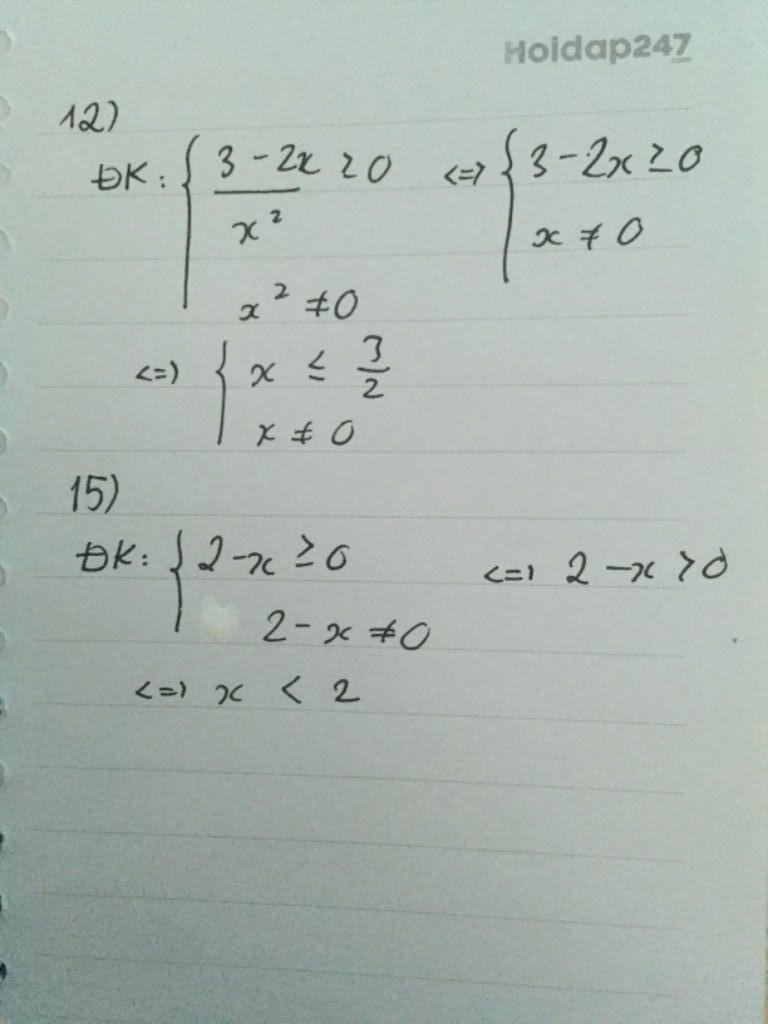 Hoidap247
.com
12)
ĐK: { (3 - 2x)/x² ≥ 0 <=> { 3 - 2x ≥ 0
x² ≠ 0 x ≠ 0
<=> { x ≤ 3/2
x ≠ 0
15)
ĐK: { 2 - x ≥ 0 <=> 2 - x > 0
2 - x ≠ 0
<=> x < 2